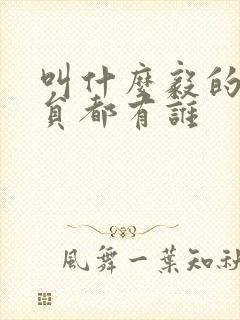 叫什麼毅的
員都有誰
風舞一葉知秋